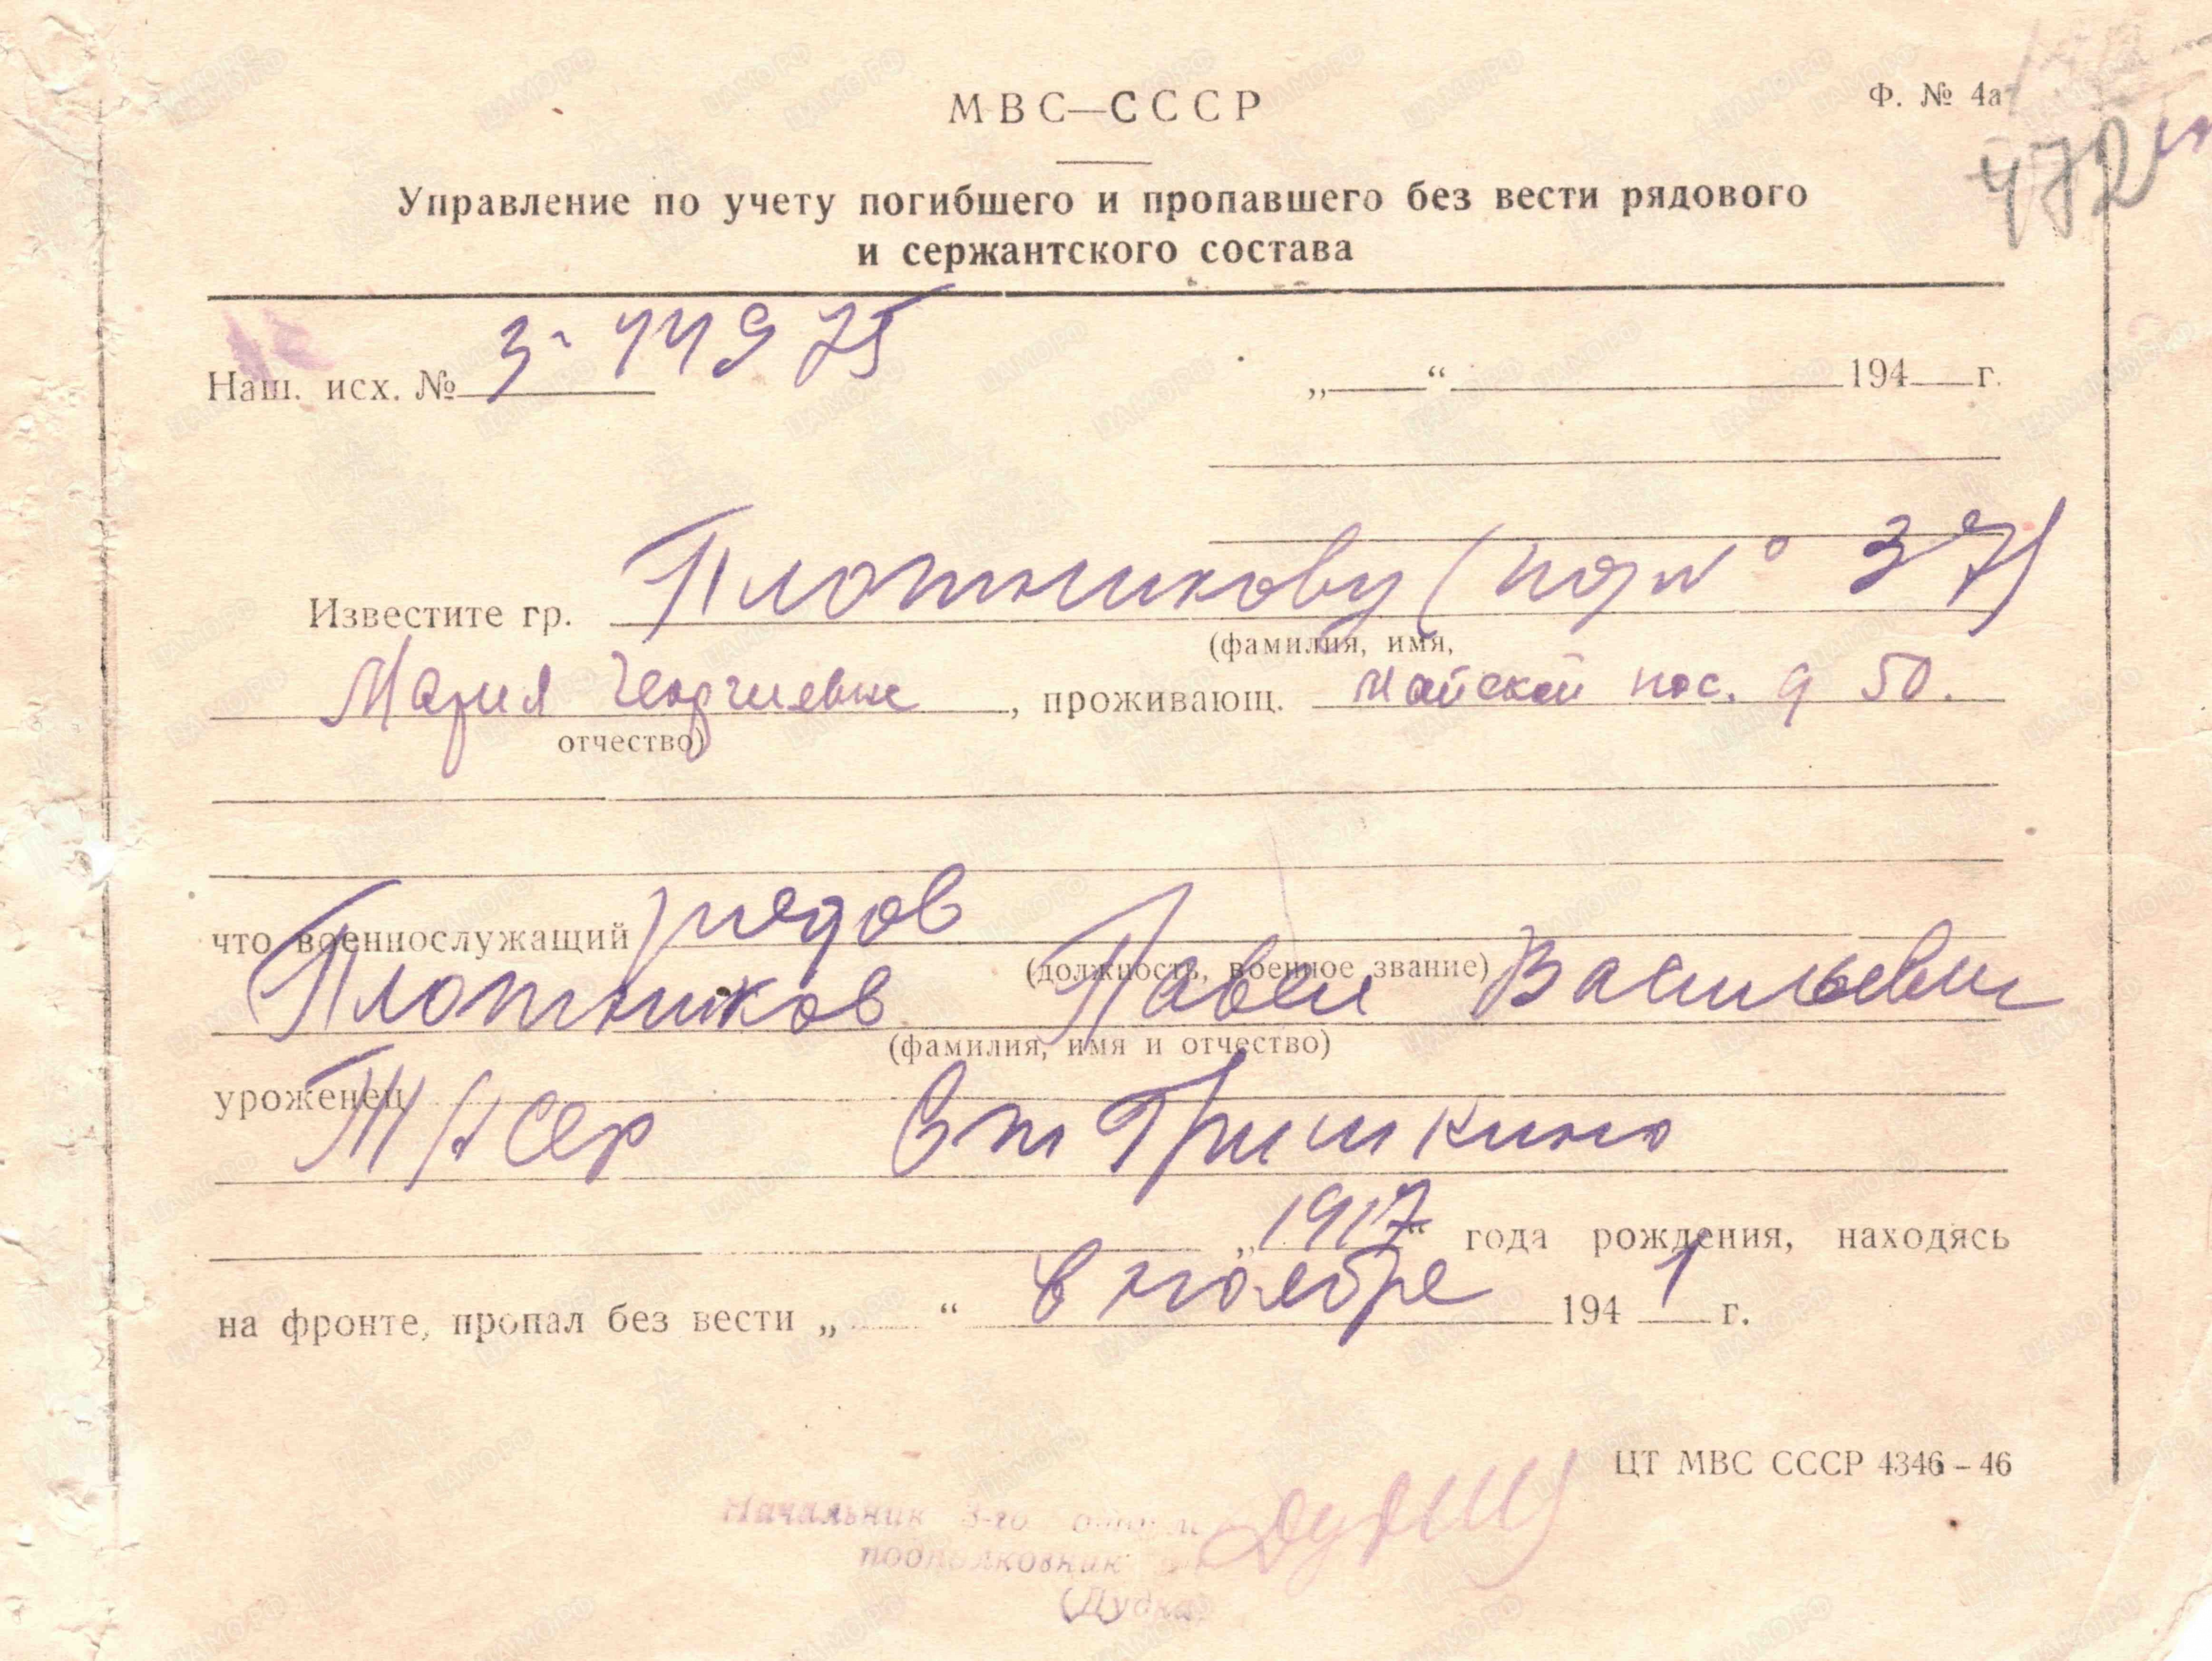 МВС—СССР
Ф. № 4а
472
Управление по учету погибшего и пропавшего без вести рядового
и сержантского состава
Наш. исх. №
„ “ 194 г.
Известите гр. Плотникову ( № 37)
(фамилия, имя,
Мария Георгиевне, проживающ. Майский пос. д 50.
отчество)
что военнослужащий рядов
(должность, военное звание)
Плотников Павел Васильевич
(фамилия, имя и отчество)
уроженец
ст Гришкино
„1917“ года рождения, находясь
на фронте, пропал без вести „ “ в ноябре 1941 г.
ЦТ МВС СССР 4346–46
Начальник 3-го отдела
подполковник
(Дудка)